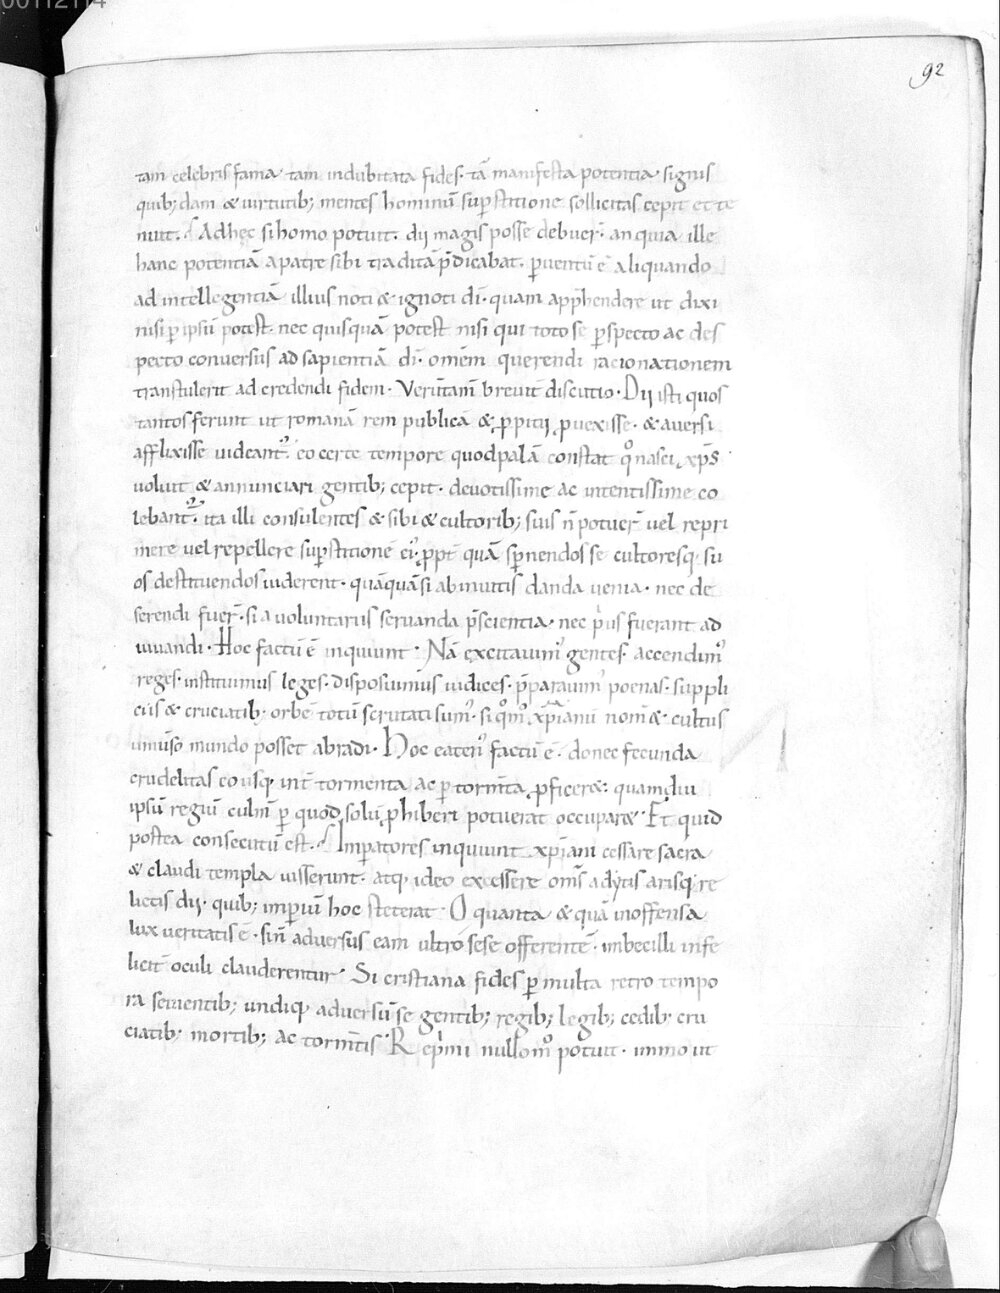 00112114
92
tam celebris fama tam indubitata fides· tā manifesta potentia signis
quib; dam & uirtutib; mentes hominū suꝑstitione sollicitas cepit et te
nuit· Adhęc si homo potuit· dij magis posse debuer̄· an quia ille
hanc potentiā a patre sibi tradita p̄dicabat· ꝑuentū ē aliquando
ad intellegentiā illius noti & ignoti dī· quam app̄hendere ut dixi
nisi ꝑ ipsū potest· nec quisquā potest nisi qui toto se ꝑspecto ac des
pecto conuersus ad sapientiā dī· omēm querendi racionationem
transtulerit ad credendi fidem· Verūtam̄ breuit̄ discutio· Dij isti quos
tantos ferunt ut romanā rem publicā & ꝓpitij ꝓuexisse· & auersi
afflixisse uideant᷑· eo certe tempore quod palā constat qͦ nasci xp̄s
uoluit & annunciari gentib; cepit· deuotissime ac intentissime co
lebant᷑· ita illi consulentes & sibi & cultorib; suis n̄ potuer̄ uel repri
mere uel repellere suꝑstitionē ei᾿· ꝓpt̄ quā sꝑnendos se cultoresq· su
os destituendos uiderent· quāquā si ab inuitis danda uenia· nec de
serendi fuer̄· si a uoluntariis seruanda p̄scientia· nec pͥus fuerant ad
iuuandi· Hoc factū ē inquiunt· Nā excitauimꝰ gentes· accendimꝰ
reges· instituimus leges· disposuimus iudices· p̄parauimꝰ poenas· suppli
ciis & cruciatib· orbē totū scrutati sumꝰ· si qͦmͦ xp̄ianū nom̄ & cultus
uniuso mundo posset abradi· Hoc eatenꝰ factū ē· donec fecunda
crudelitas eousq· int̄ tormenta ac ꝑ torm̄ta ꝓficer&· quamdiu
ipsū regiū culm̄ ꝑ quod solū ꝓhiberi potuerat occupar&· Et quid
postea consecutū est· Imꝑatores inquiunt xp̄iani cessare sacra
& claudi templa iusserunt· atq· ideo excessere om̄s adytis arisq· re
lictis dij· quib; imꝑiū hoc steterat· O quanta & quā inoffensa
lux ueritatis ē· sin̄ aduersus eam ultro sese offerentē· imbecilli infe
licit̄ oculi clauderentur· Si cristiana fides ꝑ multa retro tempo
ra seuientib; undiq· aduersū se gentib; regib; legib; cedib· cru
ciatib· mortib; ac torm̄tis Repͥmi nullomͦ potuit· immo ut